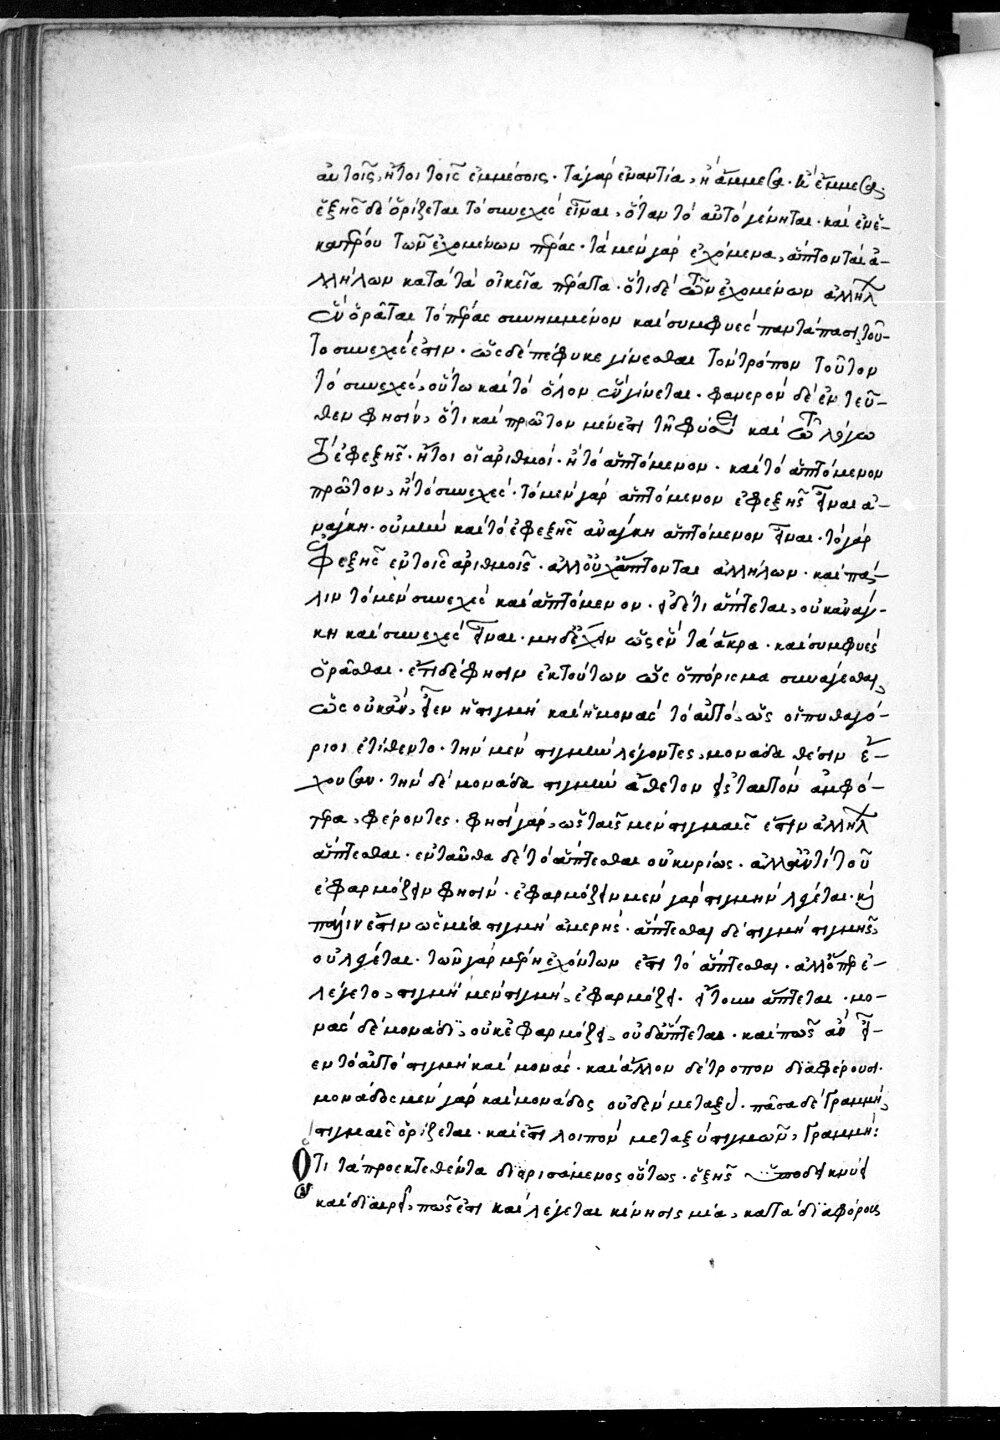 αὐτοῖς, ἤτοι τοῖς ἐμμέσοις· τὰ γὰρ ἐναντία, ἢ ἄμμεσα· ἢ ἔμμεσα,
ἑξῆς δὲ ὁρίζεται τὸ συνεχὲς εἶναι, ὅταν τὸ αὐτὸ γένηται· καὶ ἓν ἑ-
κατέρου τῶν ἐχομένων πέρας· τὰ μὲν γὰρ ἐχόμενα, ἅπτονται ἀ-
λλήλων κατὰ τὰ οἰκεῖα πέρατα· ὅτι δὲ τῶν ἐχομένων ἀλλήλων
ἓν ὁρᾶται τὸ πέρας συνημμένον καὶ συμφυὲς παντάπασι, τοῦ-
το συνεχές ἐστιν· ὡς δὲ πέφυκε γίνεσθαι τὸν τρόπον τοῦτον
τὸ συνεχές, οὕτω καὶ τὸ ὅλον ἓν γίνεται· φανερὸν δὲ ἐντεῦ-
θεν φησὶν, ὅτι καὶ πρῶτον μέν ἐστι τῇ φύσει καὶ τῷ λόγῳ
τὸ ἐφεξῆς· ἤτοι οἱ ἀριθμοί· ἢ τὸ ἁπτόμενον· καὶ τὸ ἁπτόμενον
πρῶτον, ἢ τὸ συνεχές· τὸ μὲν γὰρ ἁπτόμενον ἐφεξῆς εἶναι ἀ-
νάγκη· οὐ μὴν καὶ τὸ ἐφεξῆς ἀνάγκη ἁπτόμενον εἶναι· τὸ γὰρ
ἐφεξῆς ἐν τοῖς ἀριθμοῖς· ἀλλ' οὐχ ἅπτονται ἀλλήλων· καὶ πά-
λιν τὸ μὲν συνεχὲς καὶ ἁπτόμενον· εἰ δέ τι ἅπτεται, οὐκ ἀνάγ-
κη καὶ συνεχὲς εἶναι· μὴ δὲ ἔχειν ὡς ἓν τὰ ἄκρα· καὶ συμφυὲς
ὁρᾶσθαι· ἔτι δέ φησιν ἐκ τούτων ὡς πόρισμα συνάγεσθαι,
ὡς οὐκ ἂν εἶεν ἡ στιγμὴ καὶ ἡ μονὰς τὸ αὐτό, ὡς οἱ πυθαγό-
ριοι ἐτίθεντο· τὴν μὲν στιγμὴν λέγοντες, μονάδα θέσιν ἔ-
χουσαν· τὴν δὲ μονάδα στιγμὴν ἄθετον εἰς ταυτὸν ἀμφό-
τερα, φέροντες· φησὶ γὰρ, ὡς ταῖς μὲν στιγμαῖς ἔστιν ἀλλήλων
ἅπτεσθαι· ἐνταῦθα δὲ τὸ ἅπτεσθαι οὐ κυρίως· ἀλλ' ἀντὶ τοῦ
ἐφαρμόζειν φησίν· ἐφαρμόζειν μὲν γὰρ στιγμὴν λέγεται· καὶ
πάλιν ἐστὶν ὡς μία στιγμὴ ἀμερής· ἅπτεσθαι δὲ στιγμὴ στιγμῆς,
οὐ λέγεται· τῶν γὰρ μέρη ἐχόντων ἐστὶ τὸ ἅπτεσθαι· ἀλλ' ὅπερ ἐ-
λέγετο, στιγμὴ μὲν στιγμῇ, ἐφαρμόζει· εἴτουν ἅπτεται· μο-
νὰς δὲ μονάδι, οὐκ ἐφαρμόζει, οὐδ' ἅπτεται· καὶ πῶς ἂν εἶ-
εν τὸ αὐτὸ στιγμὴ καὶ μονάς· καὶ ἄλλον δὲ τρόπον διαφέρουσι·
μονάδος μὲν γὰρ καὶ μονάδος οὐδὲν μεταξύ· πᾶσα δὲ γραμμή,
στιγμαῖς ὁρίζεται· καὶ ἔστι λοιπὸν μεταξὺ στιγμῶν, γραμμή:
Ὅτι τὰ προεκτεθέντα διορισάμενος οὕτως· ἑξῆς ὑποδεικνύει
καὶ διαιρεῖ, πῶς ἐστι καὶ λέγεται κίνησις μία, κατὰ διαφόρους